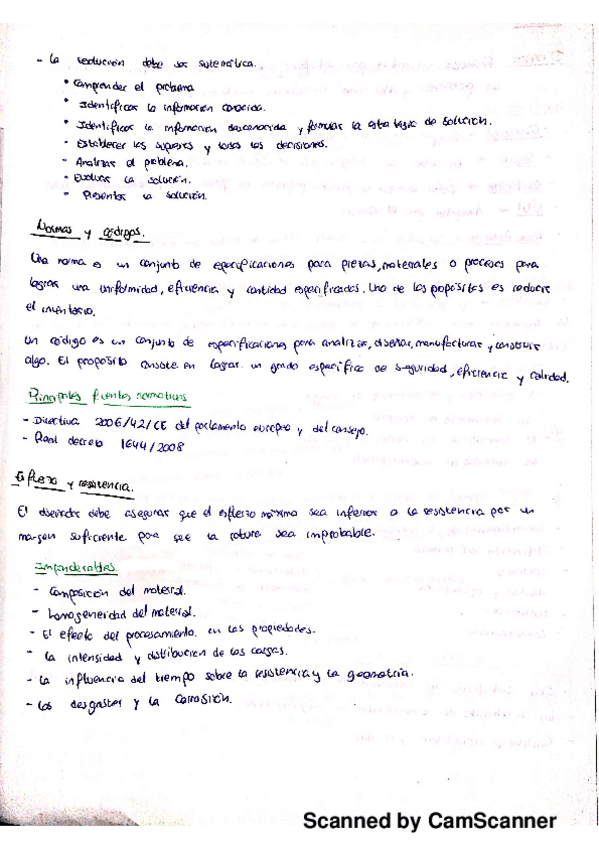 - La resolución debe ser sistemática.
• Comprender el problema
• Identificar la información conocida.
• Identificar la información desconocida y formular la estrategia de solución.
- Establecer los supuestos y todas las decisiones.
- Analizar el problema.
• Evaluar la solución.
• Presentar la solución.
Normas y códigos.
Una norma es un conjunto de especificaciones para piezas, materiales o procesos para
lograr una uniformidad, eficiencia y cantidad especificados. Uno de los propósitos es reducir
el inventario.
Un código es un conjunto de especificaciones para analizar, diseñar, manufacturar y construir
algo. El propósito consiste en lograr un grado específico de seguridad, eficiencia y calidad.
Principales fuentes normativas
- Directiva 2006/42/CE del parlamento europeo y del consejo.
- Real decreto 1644/2008
Esfuerzo y resistencia.
El diseñador debe asegurar que el esfuerzo máximo sea inferior a la resistencia por un
margen suficiente para que la rotura sea improbable.
Imponderables
- Composición del material.
- Homogeneidad del material.
- El efecto del procesamiento en las propiedades.
- La intensidad y distribución de las cargas.
- La influencia del tiempo sobre la resistencia y la geometría.
- Los desgastes y la corrosión.
Scanned by CamScanner